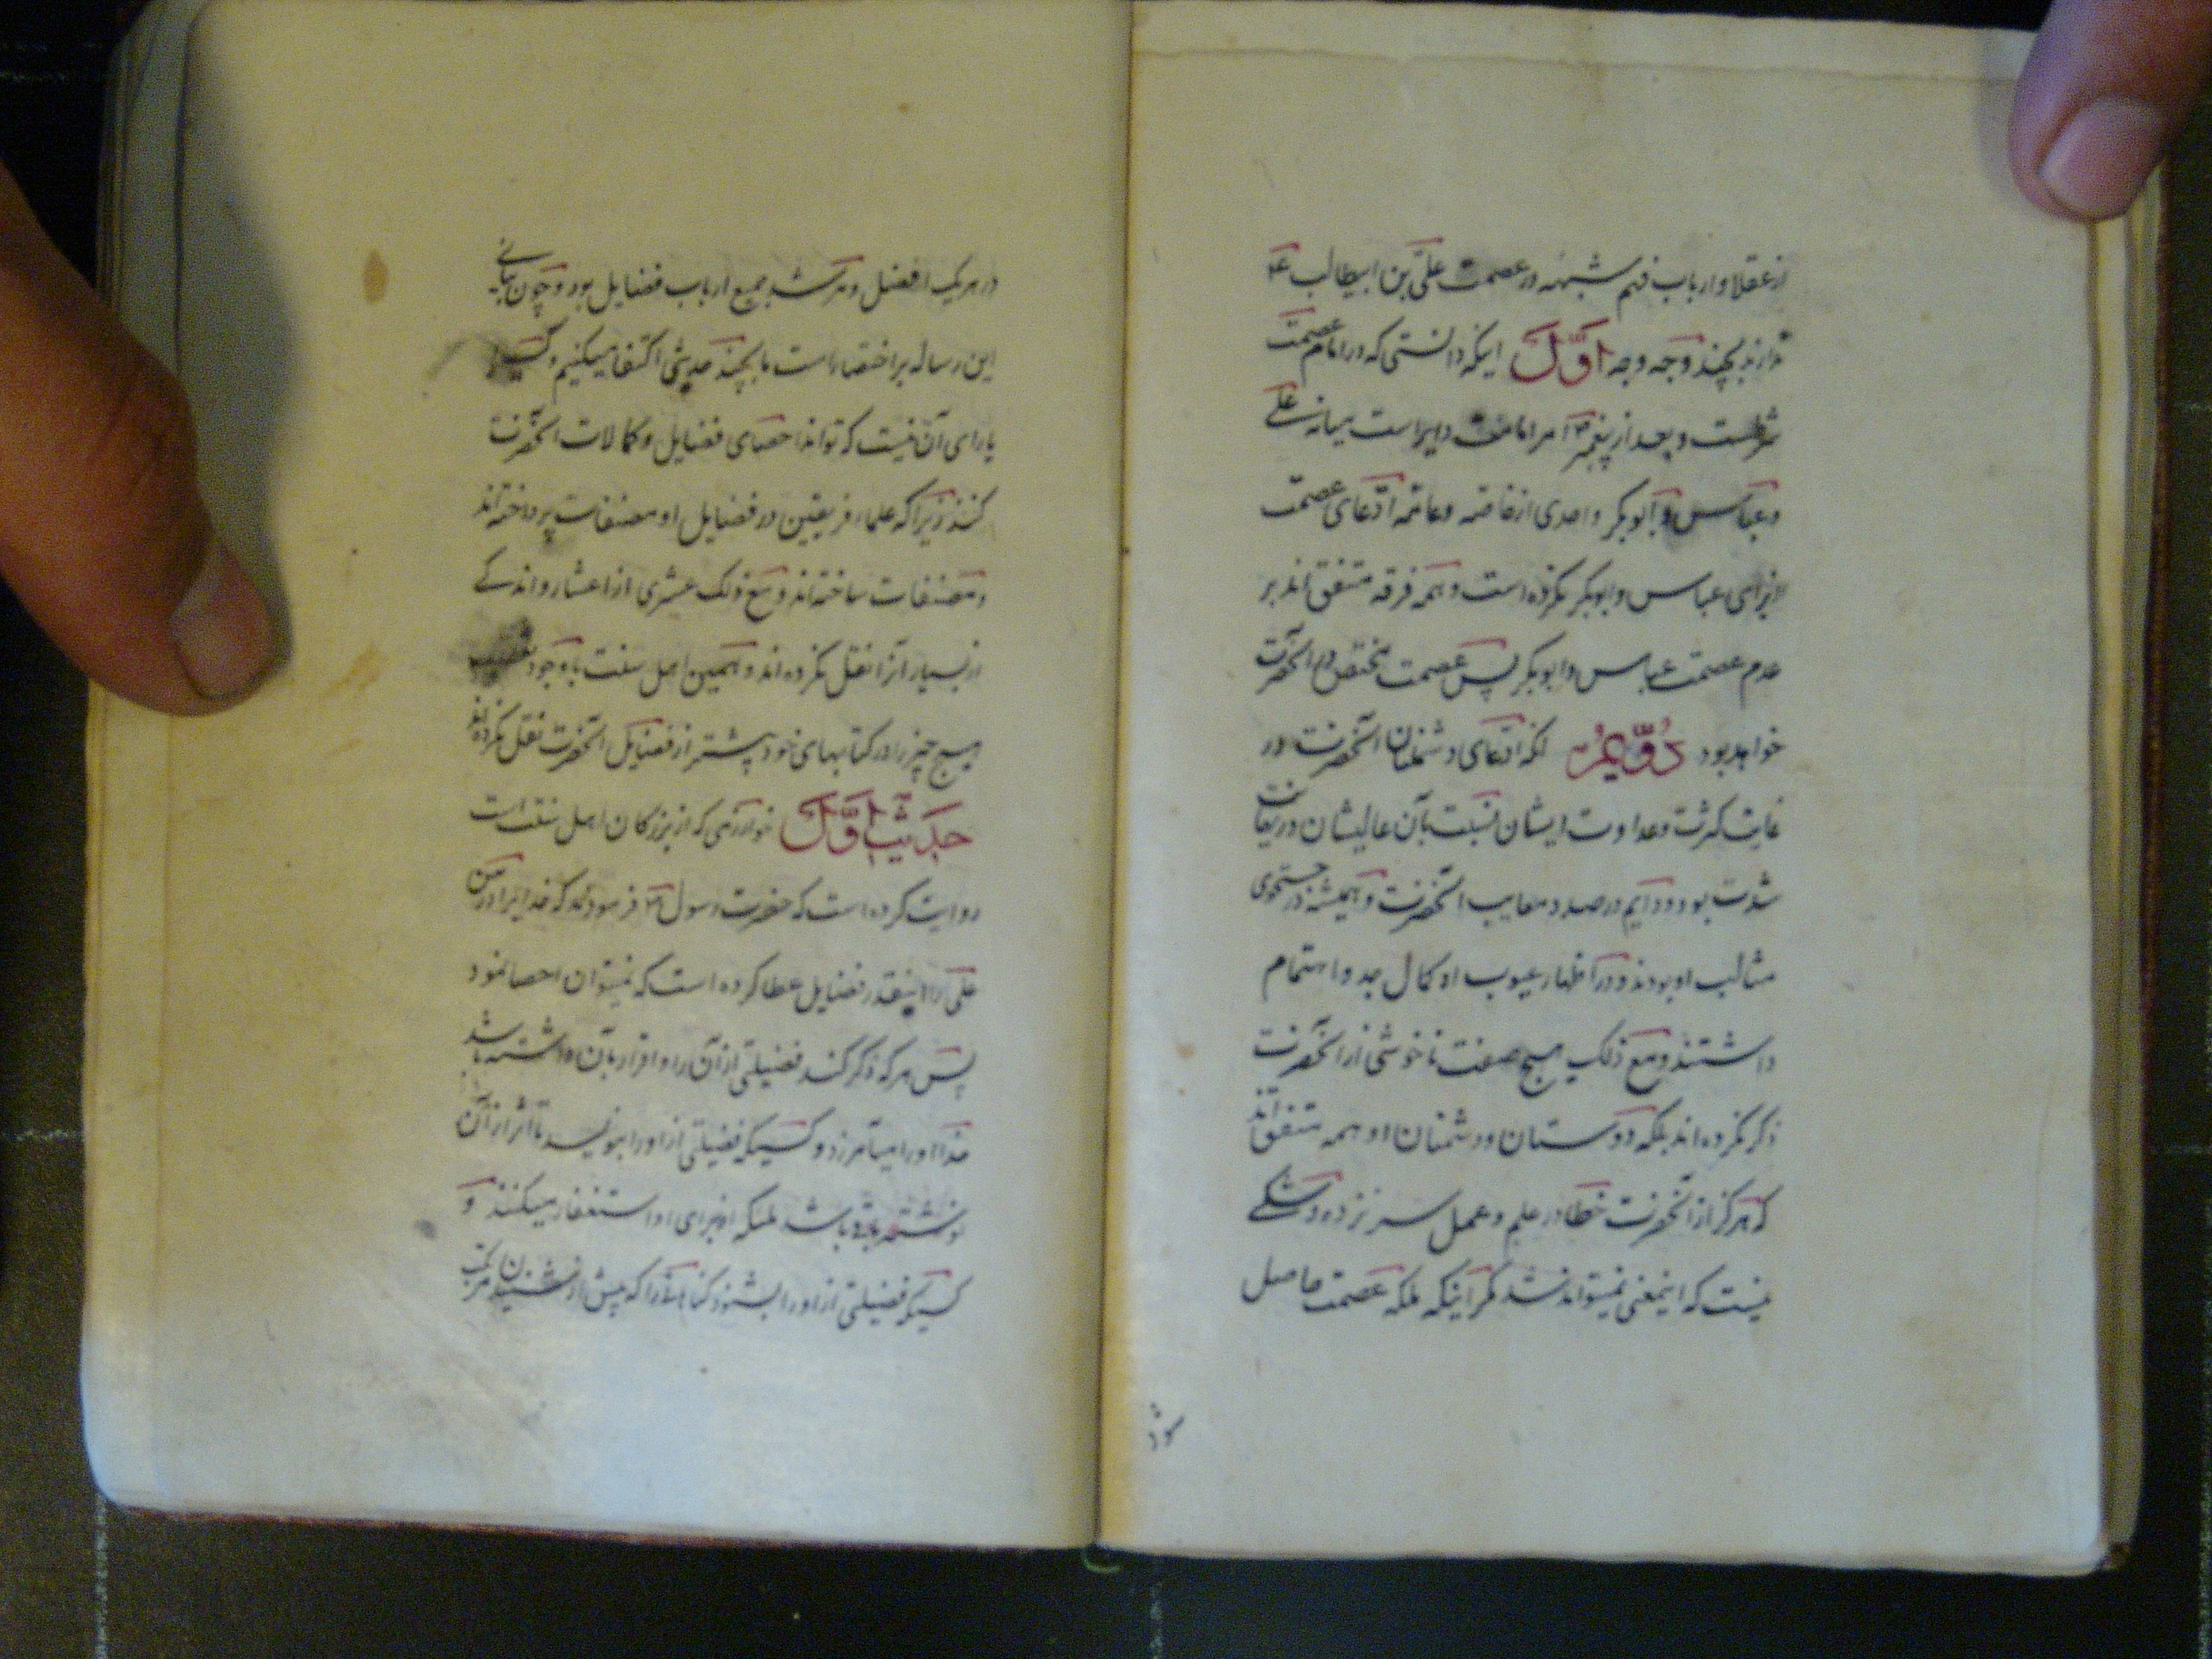 از عقلا و ارباب فهم شبهه در عصمت علی بن ابیطالب ع
ندارند بچند وجه وجه اوّل اینکه دانستی که در امام عصمت
شرطست و بعد از پیغمبر ص امر امامت دایر است میانه علی
و عباس و ابوبکر و احدی از خاصه و عامّه ادّعای عصمت
از برای عباس و ابوبکر نکرده است و همه فرقه متفق اند بر
عدم عصمت عباس و ابوبکر پس عصمت مختص در آنحضرت
خواهد بود دوّیم آنکه ادّعای دشمنان آنحضرت در
غایت کثرت و عداوت ایشان نسبت بآن عالیشان در نهایت
شدت بود و دایم در صدد معایب آنحضرت و همیشه در جستجوی
مثالب او بودند و در اظهار عیوب او کمال جد و اهتمام
داشتند و مع ذلک هیچ صفت ناخوشی از آنحضرت
ذکر نکرده اند بلکه دوستان و دشمنان او همه متفق اند
که هرگز از آنحضرت خطا در علم و عمل سر نزده و شکی
نیست که اینمعنی نمیتواند شد مگر اینکه ملکه عصمت حاصل
در هر یک افضل و سر جمیع ارباب فضایل بود و چون بنای
این رساله بر اختصار است ما بچند حدیثی اکتفا میکنیم و کسی
یارای آن نیست که تواند احصای فضایل و کمالات آنحضرت
کند زیرا که علماء فریقین در فضایل او مصنفات پرداخته اند
و مصنفات ساخته اند و مع ذلک عشری از اعشار و اندکی
از بسیار آنرا نقل نکرده اند و همین اهل سنت با وجود تعصب
هیچ چیز را در کتابهای خود پیشتر از فضایل آنحضرت نقل نکرده اند
حدیث اوّل خوارزمی که از بزرگان اهل سنت است
روایت کرده است که حضرت رسول ص فرمودند که خدا برادر من
علی را اینقدر فضایل عطا کرده است که نمیتوان احصا نمود
پس هر که ذکر کند فضیلتی از آن را و اقرار بآن داشته باشد
خدا او را بیامرزد و کسیکه فضیلتی از او را بنویسد تا اثر از آن
نوشته باقی باشد ملئکه از برای او استغفار میکنند و
کسیکه فضیلتی از او را بشنود گناهانی را که پیش از شنیدن مرتکب